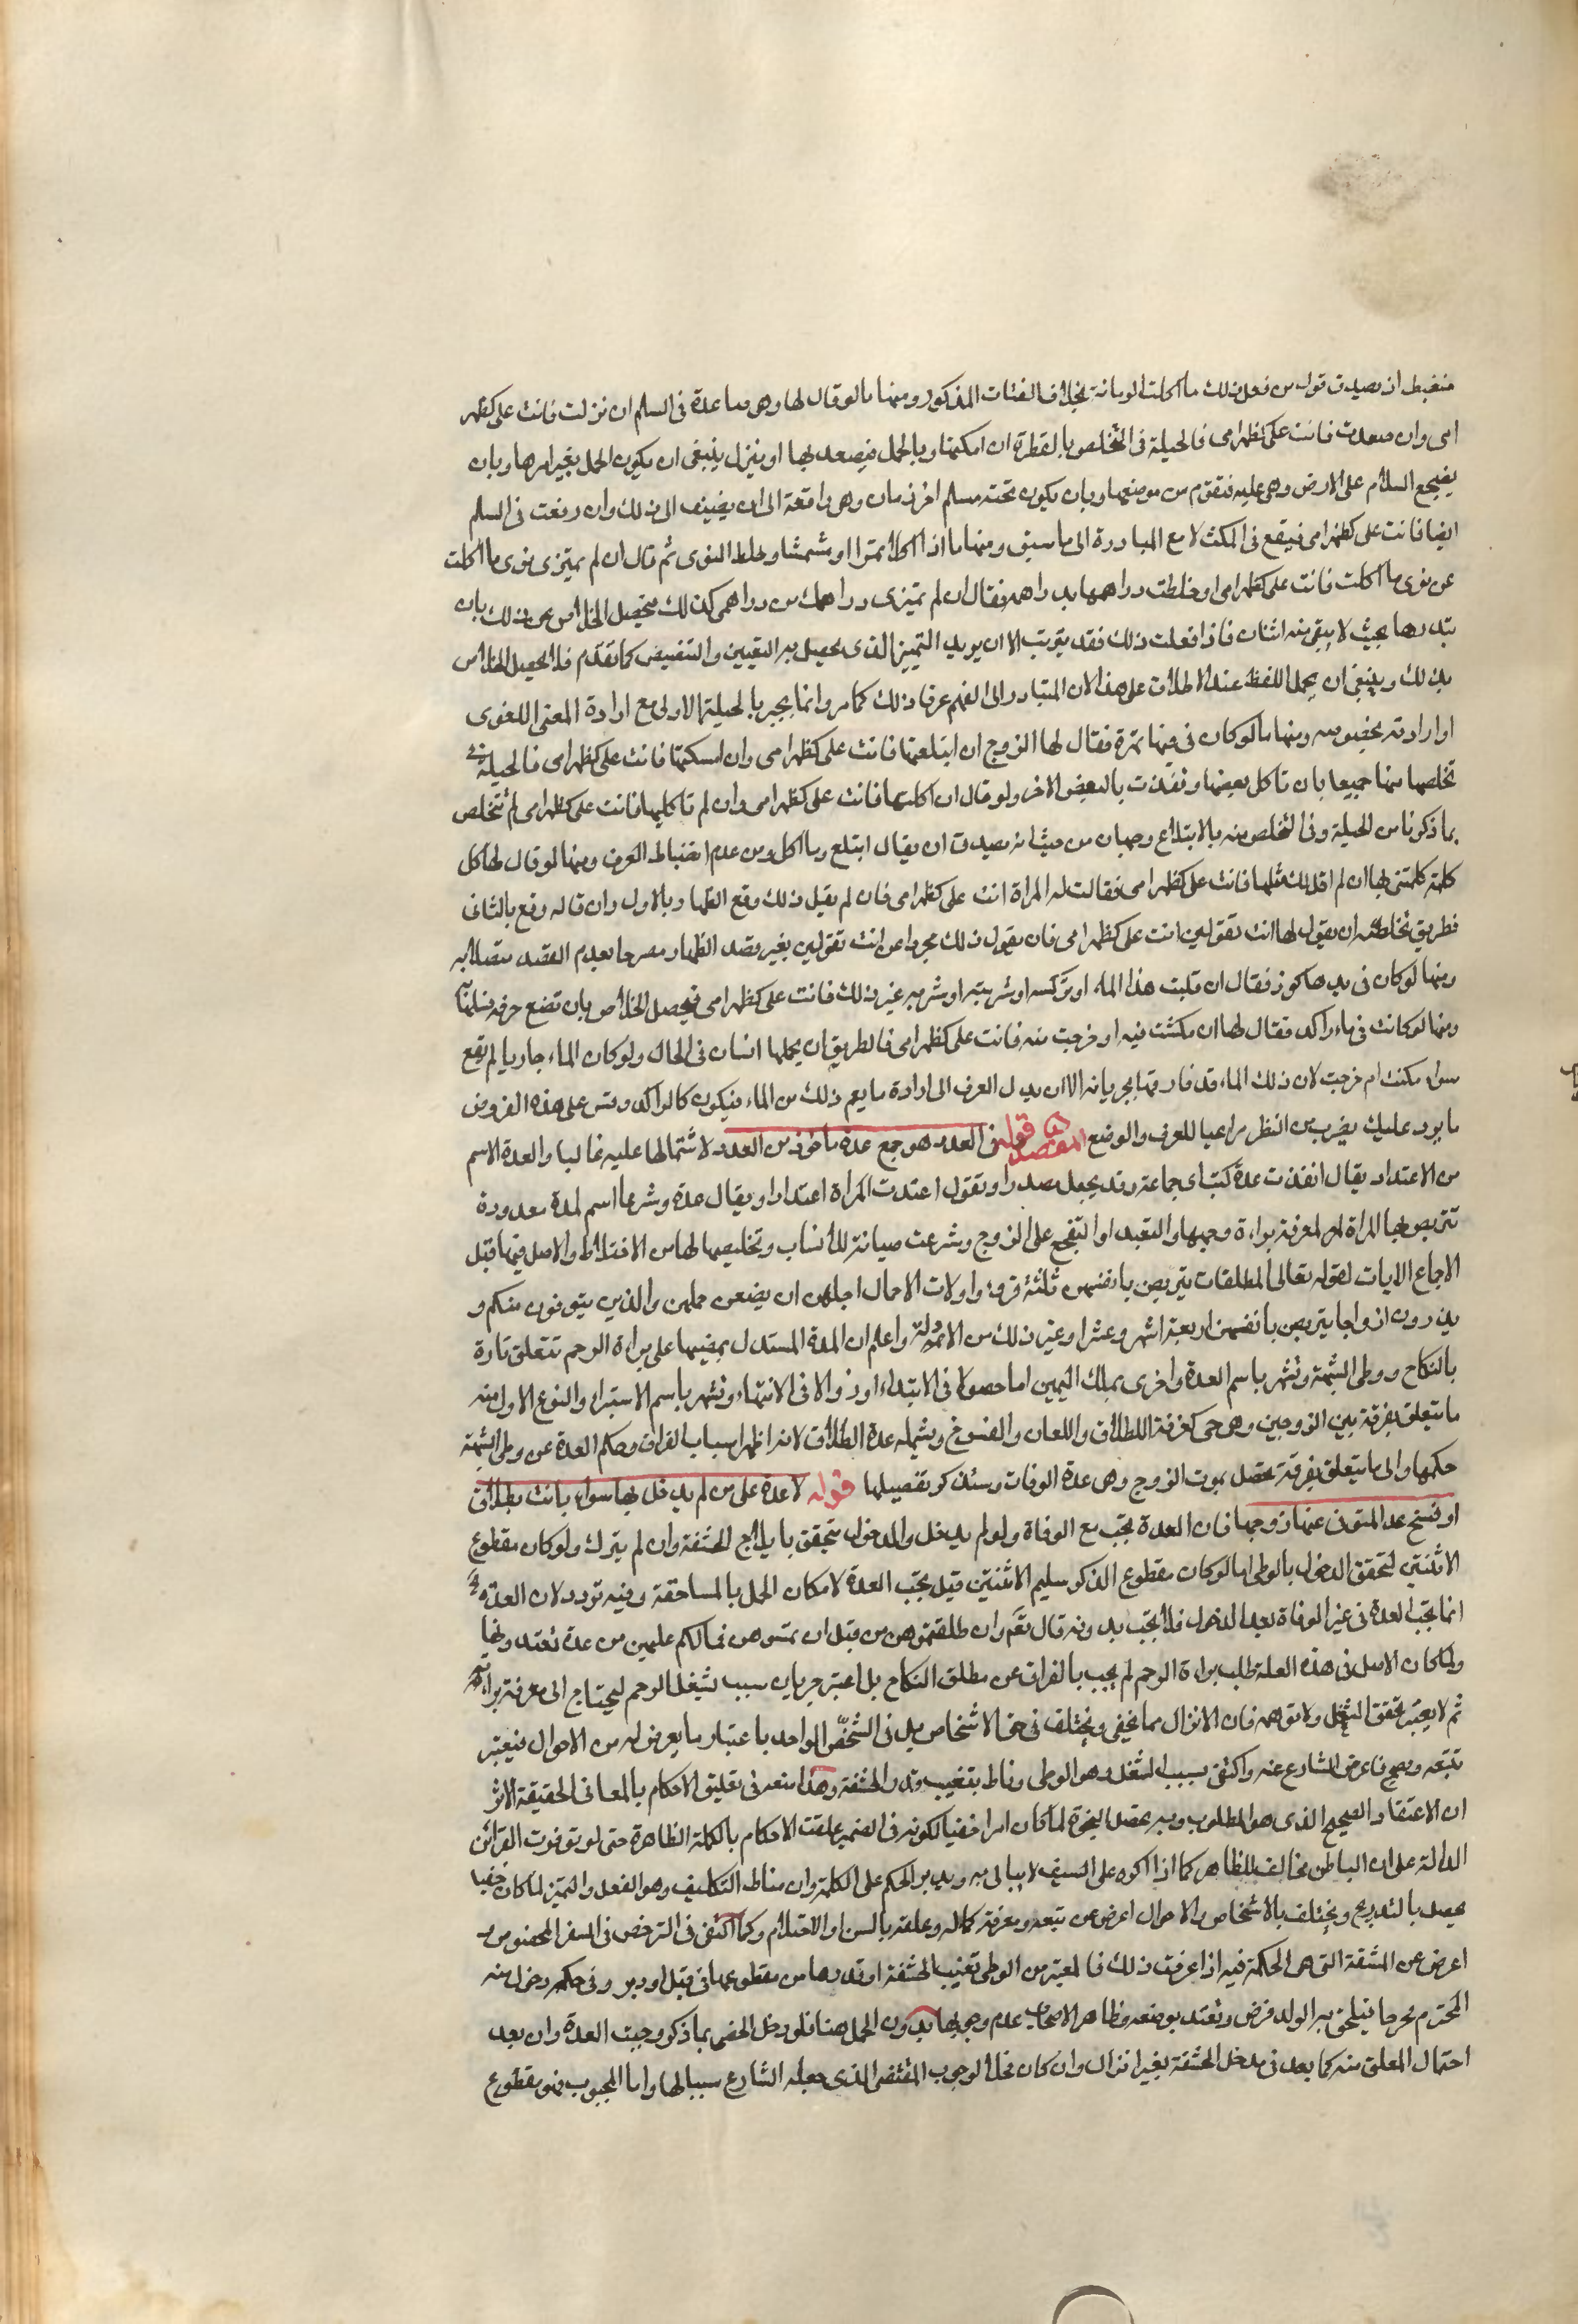 منضبط ان يصدق قول من فعل ذلك ما اكلت الرمانة بخلاف الفتات المذكور ومنها ما لو قال لها وهى صاعدة فى السلم ان نزلت فانت على كظهر
امى وان صعدت فانت على كظهر امى فالحيلة فى التخلص بالطفرة ان امكنها وبالحمل فيصعد بها او ينزل ينبغى ان يكون الحمل بغير امرها وبان
يضجع السلم على الارض وهى عليه فتقوم من موضعها وبان يكون تحته سلم اخر زمان وهى واقعة الى ان يضيف الى ذلك وان وقفت فى السلم
ايضا فانت على كظهر امى فيقع فى المكث لا مع المبادرة الى ما سبق ومنها ما اذا اكلا تمرا او مشمشا وخلط النوى ثم قال ان لم تميزى نوى ما اكلت
عن نوى ما اكلت فانت على كظهر امى او خلطت دراهمها بدراهمه فقال ان لم تميزى دراهمك من دراهمى كذلك فيحصل الخلاص عن ذلك بان
يبددها بحيث لا يبقى منه اثنان فاذا فعلت ذلك فقد الا ان يريد التمييز الذى يحصل به التعيين والتنصيص كما تقدم فلا يحصل الخلاص
بذلك وينبغى ان يحمل اللفظ عند الاطلاق على هذا لان المتبادر الى الفهم عرفا ذلك كما مر وانما يجير بالحيلة الاولى مع ارادة المعنى اللغوى
او ارادته بخصوصه ومنها ما لو كان فى فيها تمرة فقال لها الزوج ان ابتلعتها فانت على كظهر امى وان امسكتها فانت على كظهر امى فالحيلة فى
تخلصها منها جميعا بان تاكل بعضها وتقذف بالبعض الاخر ولو قال ان اكلتها فانت على كظهر امى وان لم تاكليها فانت على كظهر امى لم تتخلص
بما ذكرنا من الحيلة وفى التخلص منه بالابتلاع وجهان من حيث انه يصدق ان يقال ابتلع وما اكل ومن عدم انضباط العرف ومنها لو قال لها كل
كلمة كلمتنى بها ان لم اقل لك مثلها فانت على كظهر امى فقالت له المراة انت على كظهر امى فان لم يقل ذلك وقع الظهار بالاول وان قاله وقع بالثانى
فطريق تخلصه ان يقول لها انت تقولين انت على كظهر امى فان يقول ذلك مجردا عن انت تقولين بغير قصد الظهار مصرحا بعدم القصد متصلا به
ومنها لو كان فى يدها كوز فقال ان قلبت هذا الماء او تركته او شربتيه او شربه غيرك فانت على كظهر امى فيحصل الخلاص بان تضع خرقة فيه
ومنها لو كانت فى ماء راكد فقال لها ان مكثت فيه او خرجت منه فانت على كظهر امى فالطريق ان يحملها انسان فى الحال ولو كان الماء جاريا لم يقع
سواء مكثت ام خرجت لان ذلك الماء قد فارقها بجريانه الا ان يدل العرف الى ارادة ما يعم ذلك من الماء فيكون كالراكد وقس على هذه الفروض
ما يرد عليك بضرب من النظر مراعيا للعرف والوضع قوله المقصد ه فى العدد هو جمع عدة ماخوذ من العدد لاشتمالها عليه غالبا والعدة الاسم
من الاعتداد يقال انفذت عدة كتب اى جماعة وقد يجعل مصدرا وتقول اعتدت المراة اعتدادا ويقال عدة وشرعا اسم لمدة معدودة
تتربص بها المراة لمعرفة براءة رحمها او التعبد او التفجع على الزوج وشرعت صيانة للانساب وتخليصها لها من الاختلاط والاصل فيها قبل
الاجماع الايات لقوله تعالى المطلقات يتربصن بانفسهن ثلثة قروء واولات الاحمال اجلهن ان يضعن حملهن والذين يتوفون منكم و
يذرون ازواجا يتربصن بانفسهن اربعة اشهر وعشرا وغير ذلك من الادلة واعلم ان المدة المستدل بمضيها على براءة الرحم تتعلق تارة
بالنكاح ووطى الشبهة وتشهر باسم العدة واخرى بملك اليمين اما حصولا فى الابتداء او زوالا فى الانتهاء وتشهر باسم الاستبراء والنوع الاول منه
ما يتعلق بفرقة بين الزوجين وهو حى كفرقة الطلاق واللعان والفسوخ ويشمله عدة الطلاق لانه اظهر اسباب الفراق وحكم العدة عن وطى الشبهة
حكمها والى ما يتعلق بفرقة تحصل بموت الزوج وهى عدة الوفات وسنذكر تفصيلها قوله لا عدة على من لم يدخل بها سواء بانت بطلاق
او فسخ عدا المتوفى عنها زوجها فان العدة تجب مع الوفاة ولو لم يدخل والدخول يتحقق بايلاج الحشفة وان لم ينزل ولو كان مقطوع
الانثيين لتحقق الدخول بالوطى اما لو كان مقطوع الذكر سليم الانثيين قيل تجب العدة لامكان الحمل بالمساحقة وفيه تردد لان العدة
انما تجب العدة فى غير الوفاة بعد الدخول فلا تجب بدونه قال تعَ وان طلقتموهن من قبل ان تمسوهن فما لكم عليهن من عدة تعتدونها
ولما كان الاصل فى هذه العلة طلب براءة الرحم لم يجب بالفراق عن مطلق النكاح بل اعتبر جريان سبب شغل الرحم ليحتاج الى معرفة براءته
ثم لا يعتبر تحقق الشغل ولا توهمه فان الانزال مما يخفى ويختلف فى حق الاشخاص بل فى الشخص الواحد باعتبار ما يعرض له من الاحوال فيعسر
تتبعه فاعرض الشارع عنه واكتفى بسبب الشغل وهو الوطى وناط بتغييب قدر الحشفة وهذا فى تعليق الاحكام بالمعانى الحقيقة الا ترى
ان الاعتقاد الصحيح الذى هو المطلوب وبه تحصل النجاة لما كان امرا خفيا لكونه فى الضمير علقت الاحكام بالكلمة الظاهرة حتى لو توفرت القرائن
الدالة على ان الباطن مخالف للظاهر كما اذا اكره على السيف لا يبالى به ويدير الحكم على الكلمة وان مناط التكليف وهو الفعل والتميز لما كان خفيا
يحصل بالتدريج ويختلف بالاشخاص والاحوال اعرض عن تتبعه ومعرفة كماله وعلقه بالسن او الاحتلام وكما اكتفى فى الترخص فى السفر المخصوص و
اعرض عن المشقة التى هى الحكمة فيه اذا عرفت ذلك فالمعتبر من الوطى تغييب الحشفة او قدرها من مقطوعها فى قبل او دبر وفى حكمه دخول منه
المحترم فرجا فيلحق به الولد فرض وتعتد بوضعه وظاهر الاصحاب عدم وجوبها بدون الحمل هنا فلو دخل الخصى بما ذكر وجبت العدة وان بعد
احتمال العلق منه كما بعد فى مدخل الحشفة بغير انزال وان كان الوجوب المقتضى الذى جعله الشارع سببا لها واما المجبوب فهو مقطوع